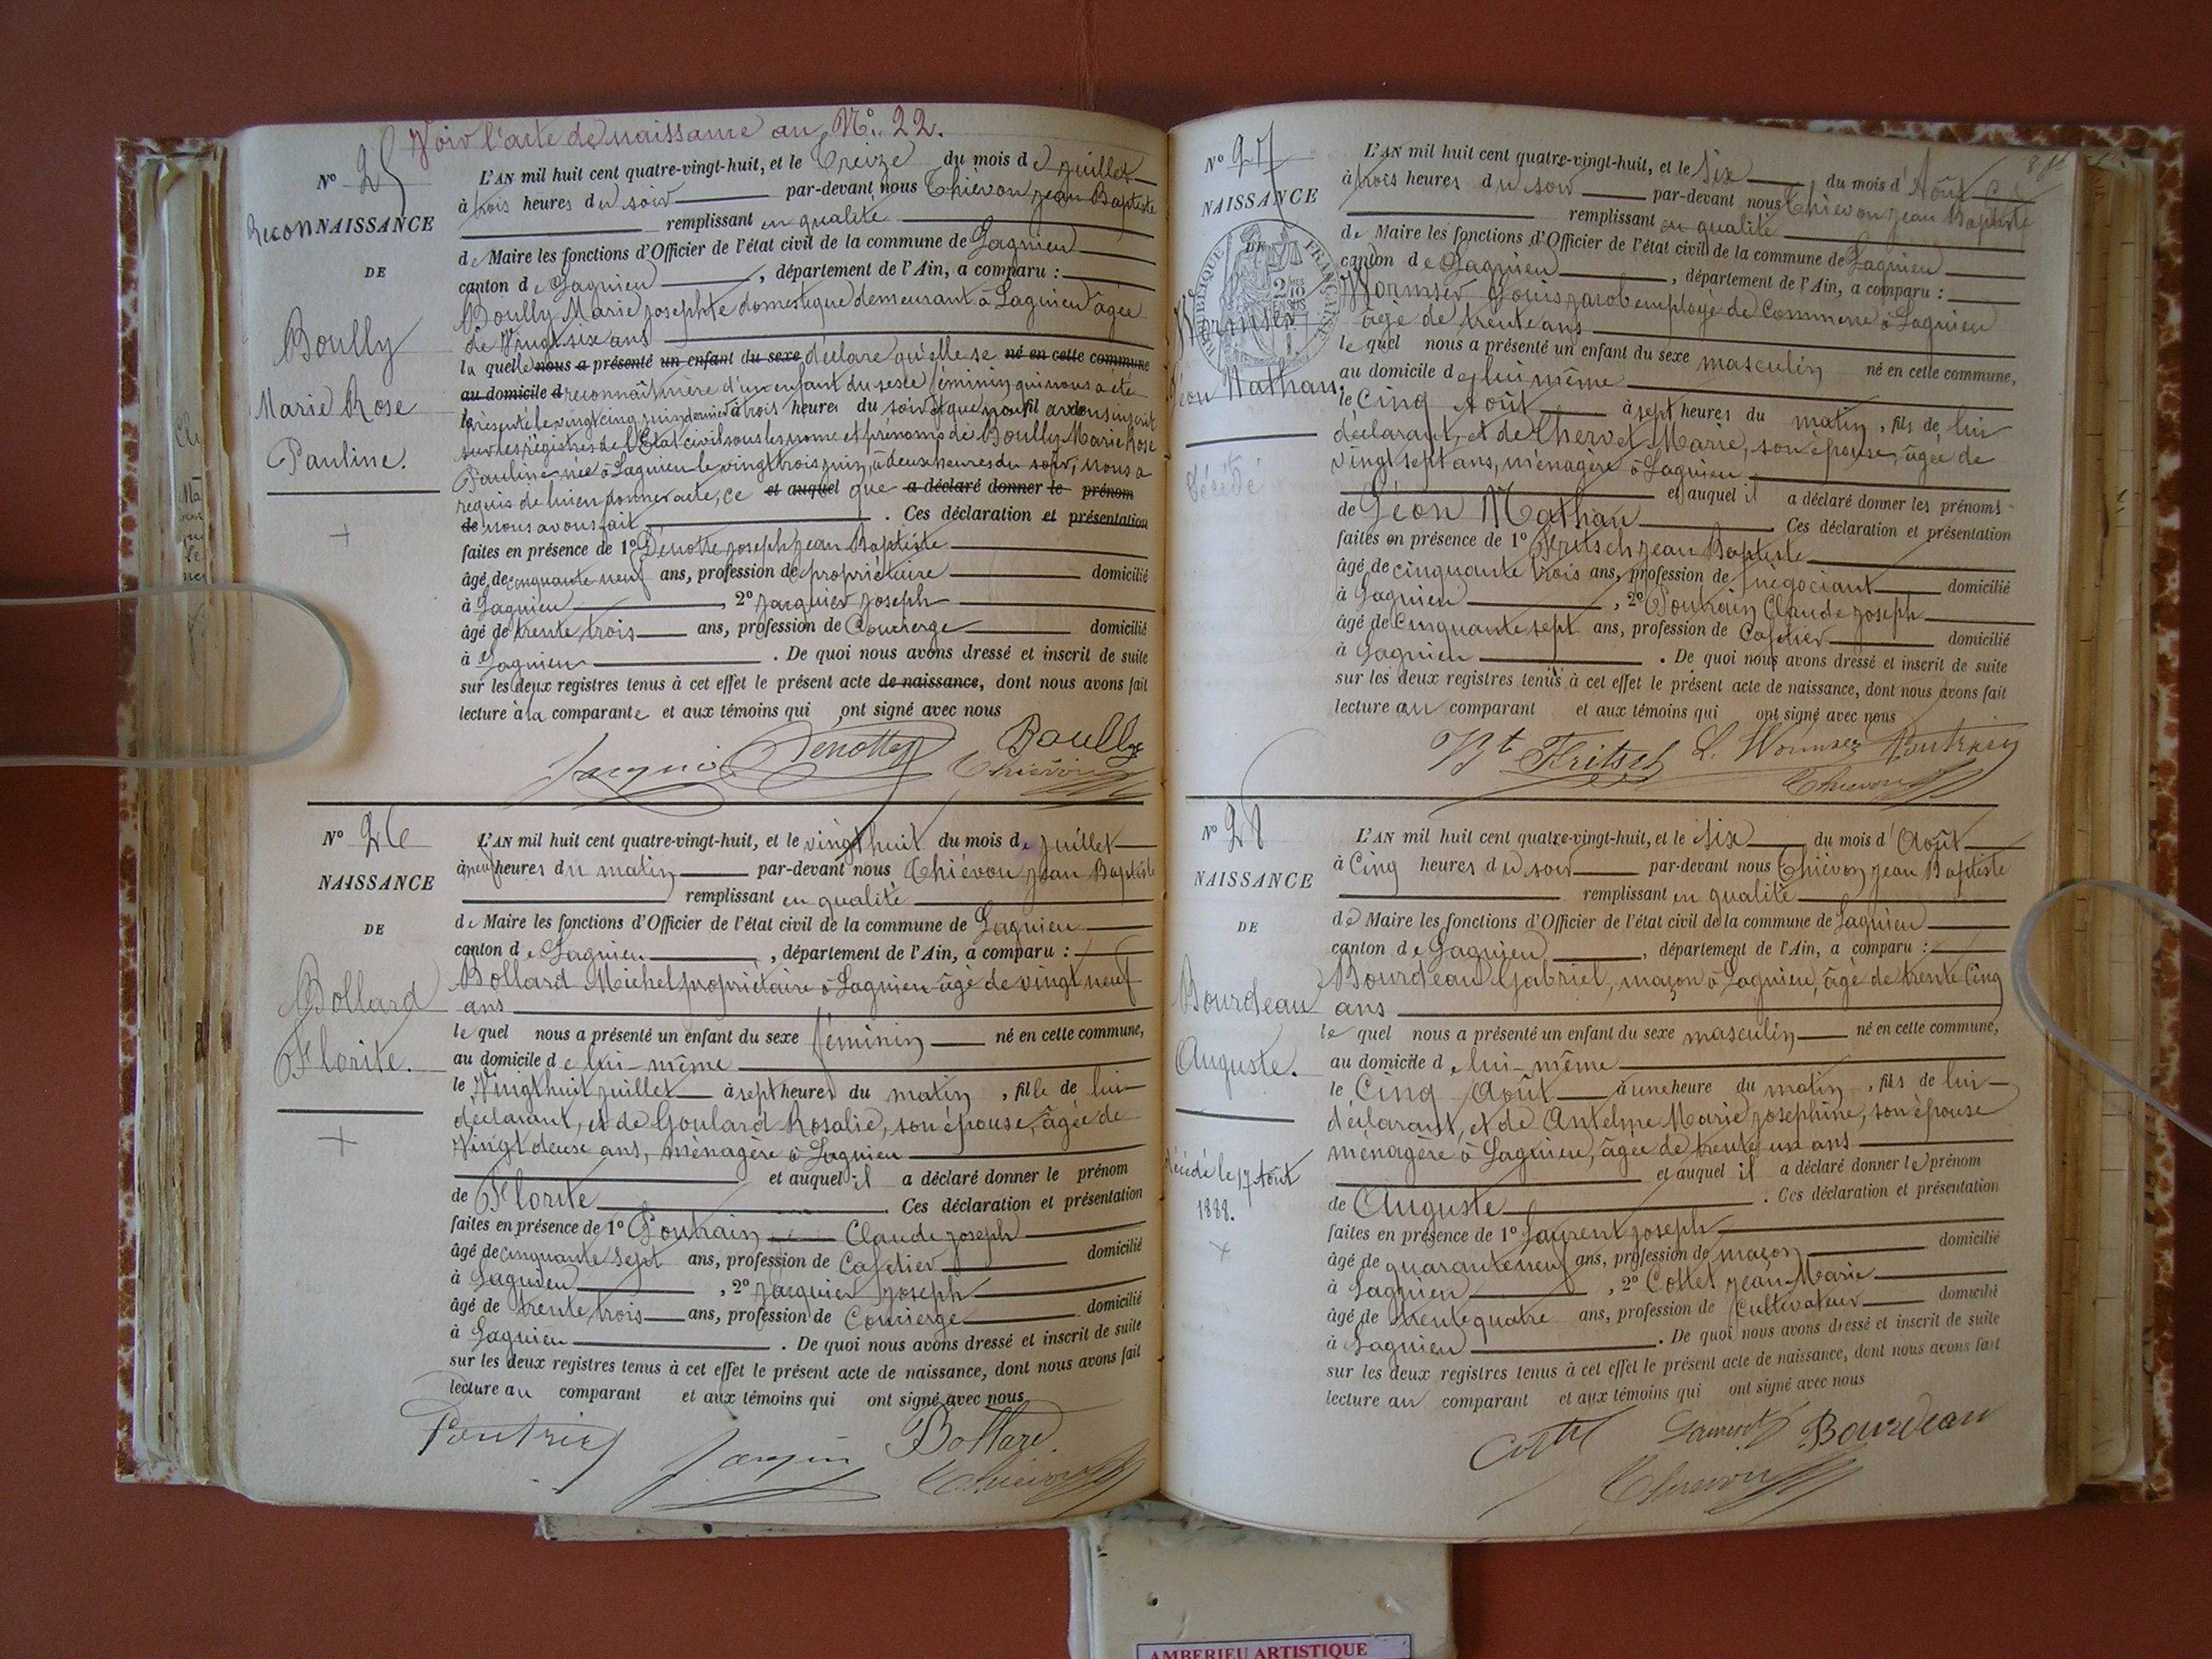 Voir l'acte de naissance au N° 22.
N° 25
reconNAISSANCE
DE
Boully
Marie Rose
Pauline.
L'AN mil huit cent quatre-vingt-huit, et le Treize du mois de juillet
à trois heures du soir par-devant nous Thiévon jean Baptiste
remplissant en qualité
de Maire les fonctions d'Officier de l'état civil de la commune de Lagnieu
canton de Lagnieu, département de l'Ain, a comparu :
Boully Marie josephte domestique demeurant à Lagnieu âgée
de Vingt six ans
la quelle nous a présenté un enfant du sexe déclare qu'elle se né en cette commune
au domicile d reconnaît mère d'un enfant du sexe féminin qui nous a été
présenté le vingt cinq juin dernier à trois heures du soir et que nous avons inscrit
sur les régistres de l'Etat civil sous les noms et prénoms de Boully Marie Rose
Pauline née à Lagnieu le vingt trois juin, à deux heures du soir, nous a
requis de lui en donner acte, ce et auquel que a déclaré donner le prénom
de nous avons fait. Ces déclaration et présentation
faites en présence de 1° Denotte joseph jean Baptiste
âgé de cinquante neuf ans, profession de propriétaire domicilié
à Lagnieu, 2° jacquier joseph
âgé de trente trois ans, profession de Concierge domicilié
à Lagnieu. De quoi nous avons dressé et inscrit de suite
sur les deux registres tenus à cet effet le présent acte de naissance, dont nous avons fait
lecture à la comparante et aux témoins qui ont signé avec nous
Jacquier Denotte Boully
Thiévon
N° 26
NAISSANCE
DE
Bollard
Florite.
L'AN mil huit cent quatre-vingt-huit, et le vingt huit du mois de juillet
à neuf heures du matin par-devant nous Thiévon jean Baptiste
remplissant en qualité
de Maire les fonctions d'Officier de l'état civil de la commune de Lagnieu
canton de Lagnieu, département de l'Ain, a comparu :
Bollard Michel propriétaire à Lagnieu âgé de vingt neuf
ans
le quel nous a présenté un enfant du sexe féminin né en cette commune,
au domicile de lui-même
le Vingt huit juillet à sept heures du matin, fille de lui
déclarant, et de Goulard Rosalie, son épouse, âgée de
Vingt deux ans, ménagère à Lagnieu
et auquel il a déclaré donner le prénom
de Florite. Ces déclaration et présentation
faites en présence de 1° Poutrain Claude joseph
âgé de cinquante sept ans, profession de Cafetier domicilié
à Lagnieu, 2° jacquier joseph
âgé de trente trois ans, profession de Concierge domicilié
à Lagnieu. De quoi nous avons dressé et inscrit de suite
sur les deux registres tenus à cet effet le présent acte de naissance, dont nous avons fait
lecture au comparant et aux témoins qui ont signé avec nous
Poutrain Jacquier Bollard
Thiévon
N° 27
NAISSANCE
DE
RÉPUBLIQUE FRANÇAISE
Wormser
Léon Nathan.
Décédé
L'AN mil huit cent quatre-vingt-huit, et le Six du mois d'Août
à trois heures du soir par-devant nous Thiévon jean Baptiste
remplissant en qualité
de Maire les fonctions d'Officier de l'état civil de la commune de Lagnieu
canton de Lagnieu, département de l'Ain, a comparu :
Wormser Louis jacob employé de Commerce à Lagnieu
âgé de trente ans
le quel nous a présenté un enfant du sexe masculin né en cette commune,
au domicile de lui même
le Cinq Août à sept heures du matin, fils de lui
déclarant, et de Thervet Marie, son épouse, âgée de
vingt sept ans, ménagère à Lagnieu
et auquel il a déclaré donner les prénoms
de Léon Nathan Ces déclaration et présentation
faites en présence de 1° Fritsch jean Baptiste
âgé de cinquante trois ans, profession de négociant domicilié
à Lagnieu, 2° Poutrain Claude joseph
âgé de Cinquante sept ans, profession de Cafetier domicilié
à Lagnieu. De quoi nous avons dressé et inscrit de suite
sur les deux registres tenus à cet effet le présent acte de naissance, dont nous avons fait
lecture au comparant et aux témoins qui ont signé avec nous
Bt Fritsch L. Wormser Poutrain
Thiévon
N° 28
NAISSANCE
DE
Bourdeau
Auguste.
Décédé le 17 Août
1888.
L'AN mil huit cent quatre-vingt-huit, et le six du mois d'Août
à Cinq heures du soir par-devant nous Thiévon jean Baptiste
remplissant en qualité
de Maire les fonctions d'Officier de l'état civil de la commune de Lagnieu
canton de Lagnieu, département de l'Ain, a comparu :
Bourdeau Gabriel, maçon à Lagnieu, âgé de trente Cinq
ans
le quel nous a présenté un enfant du sexe masculin né en cette commune,
au domicile de lui-même
le Cinq Août à une heure du matin, fils de lui
déclarant, et de Antelme Marie josephine, son épouse
ménagère à Lagnieu, âgée de trente un ans
et auquel il a déclaré donner le prénom
de Auguste. Ces déclaration et présentation
faites en présence de 1° Laurent joseph
âgé de quarante neuf ans, profession de maçon domicilié
à Lagnieu, 2° Cottet jean Marie
âgé de trente quatre ans, profession de Cultivateur domicilié
à Lagnieu. De quoi nous avons dressé et inscrit de suite
sur les deux registres tenus à cet effet le présent acte de naissance, dont nous avons fait
lecture au comparant et aux témoins qui ont signé avec nous
Cottet Laurent Bourdeau
Thiévon
AMBERIEU ARTISTIQUE